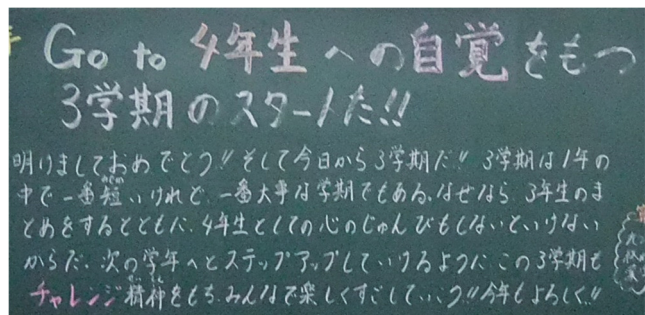 Go to 4年生への自覚をもつ
3学期のスタートだ!!
明けましておめでとう!! そして今日から3学期だ!! 3学期は1年の
中で一番短いけれど、一番大事な学期でもある。なぜなら、3年生のま
とめをするとともに、4年生としての心のじゅんびもしないといけない
からだ。次の学年へとステップアップしていけるように、この3学期も
チャレンジ精神をもち、みんなで楽しくすごしていこう!! 今年もよろしく!!